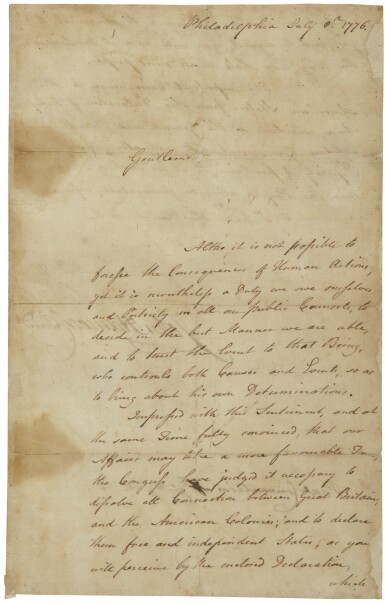 Philadelphia July 6th 1776.
Gentlemen
Altho it is not possible to
foresee the Consequences of Human Actions,
yet it is nevertheless a Duty we owe ourselves
and Posterity in all our public Counsels, to
decide in the best Manner we are able,
and to trust the Event to that Being,
who controuls both Causes and Events, so as
to bring about his own Determinations.
Impressed with this Sentiment, and at
the same Time fully convinced, that our
Affairs may take a more favourable Turn,
the Congress have judged it necessary to
dissolve all Connection between Great Britain,
and the American Colonies; and to declare
them free and independent States; as you
will perceive by the enclosed Declaration,
which